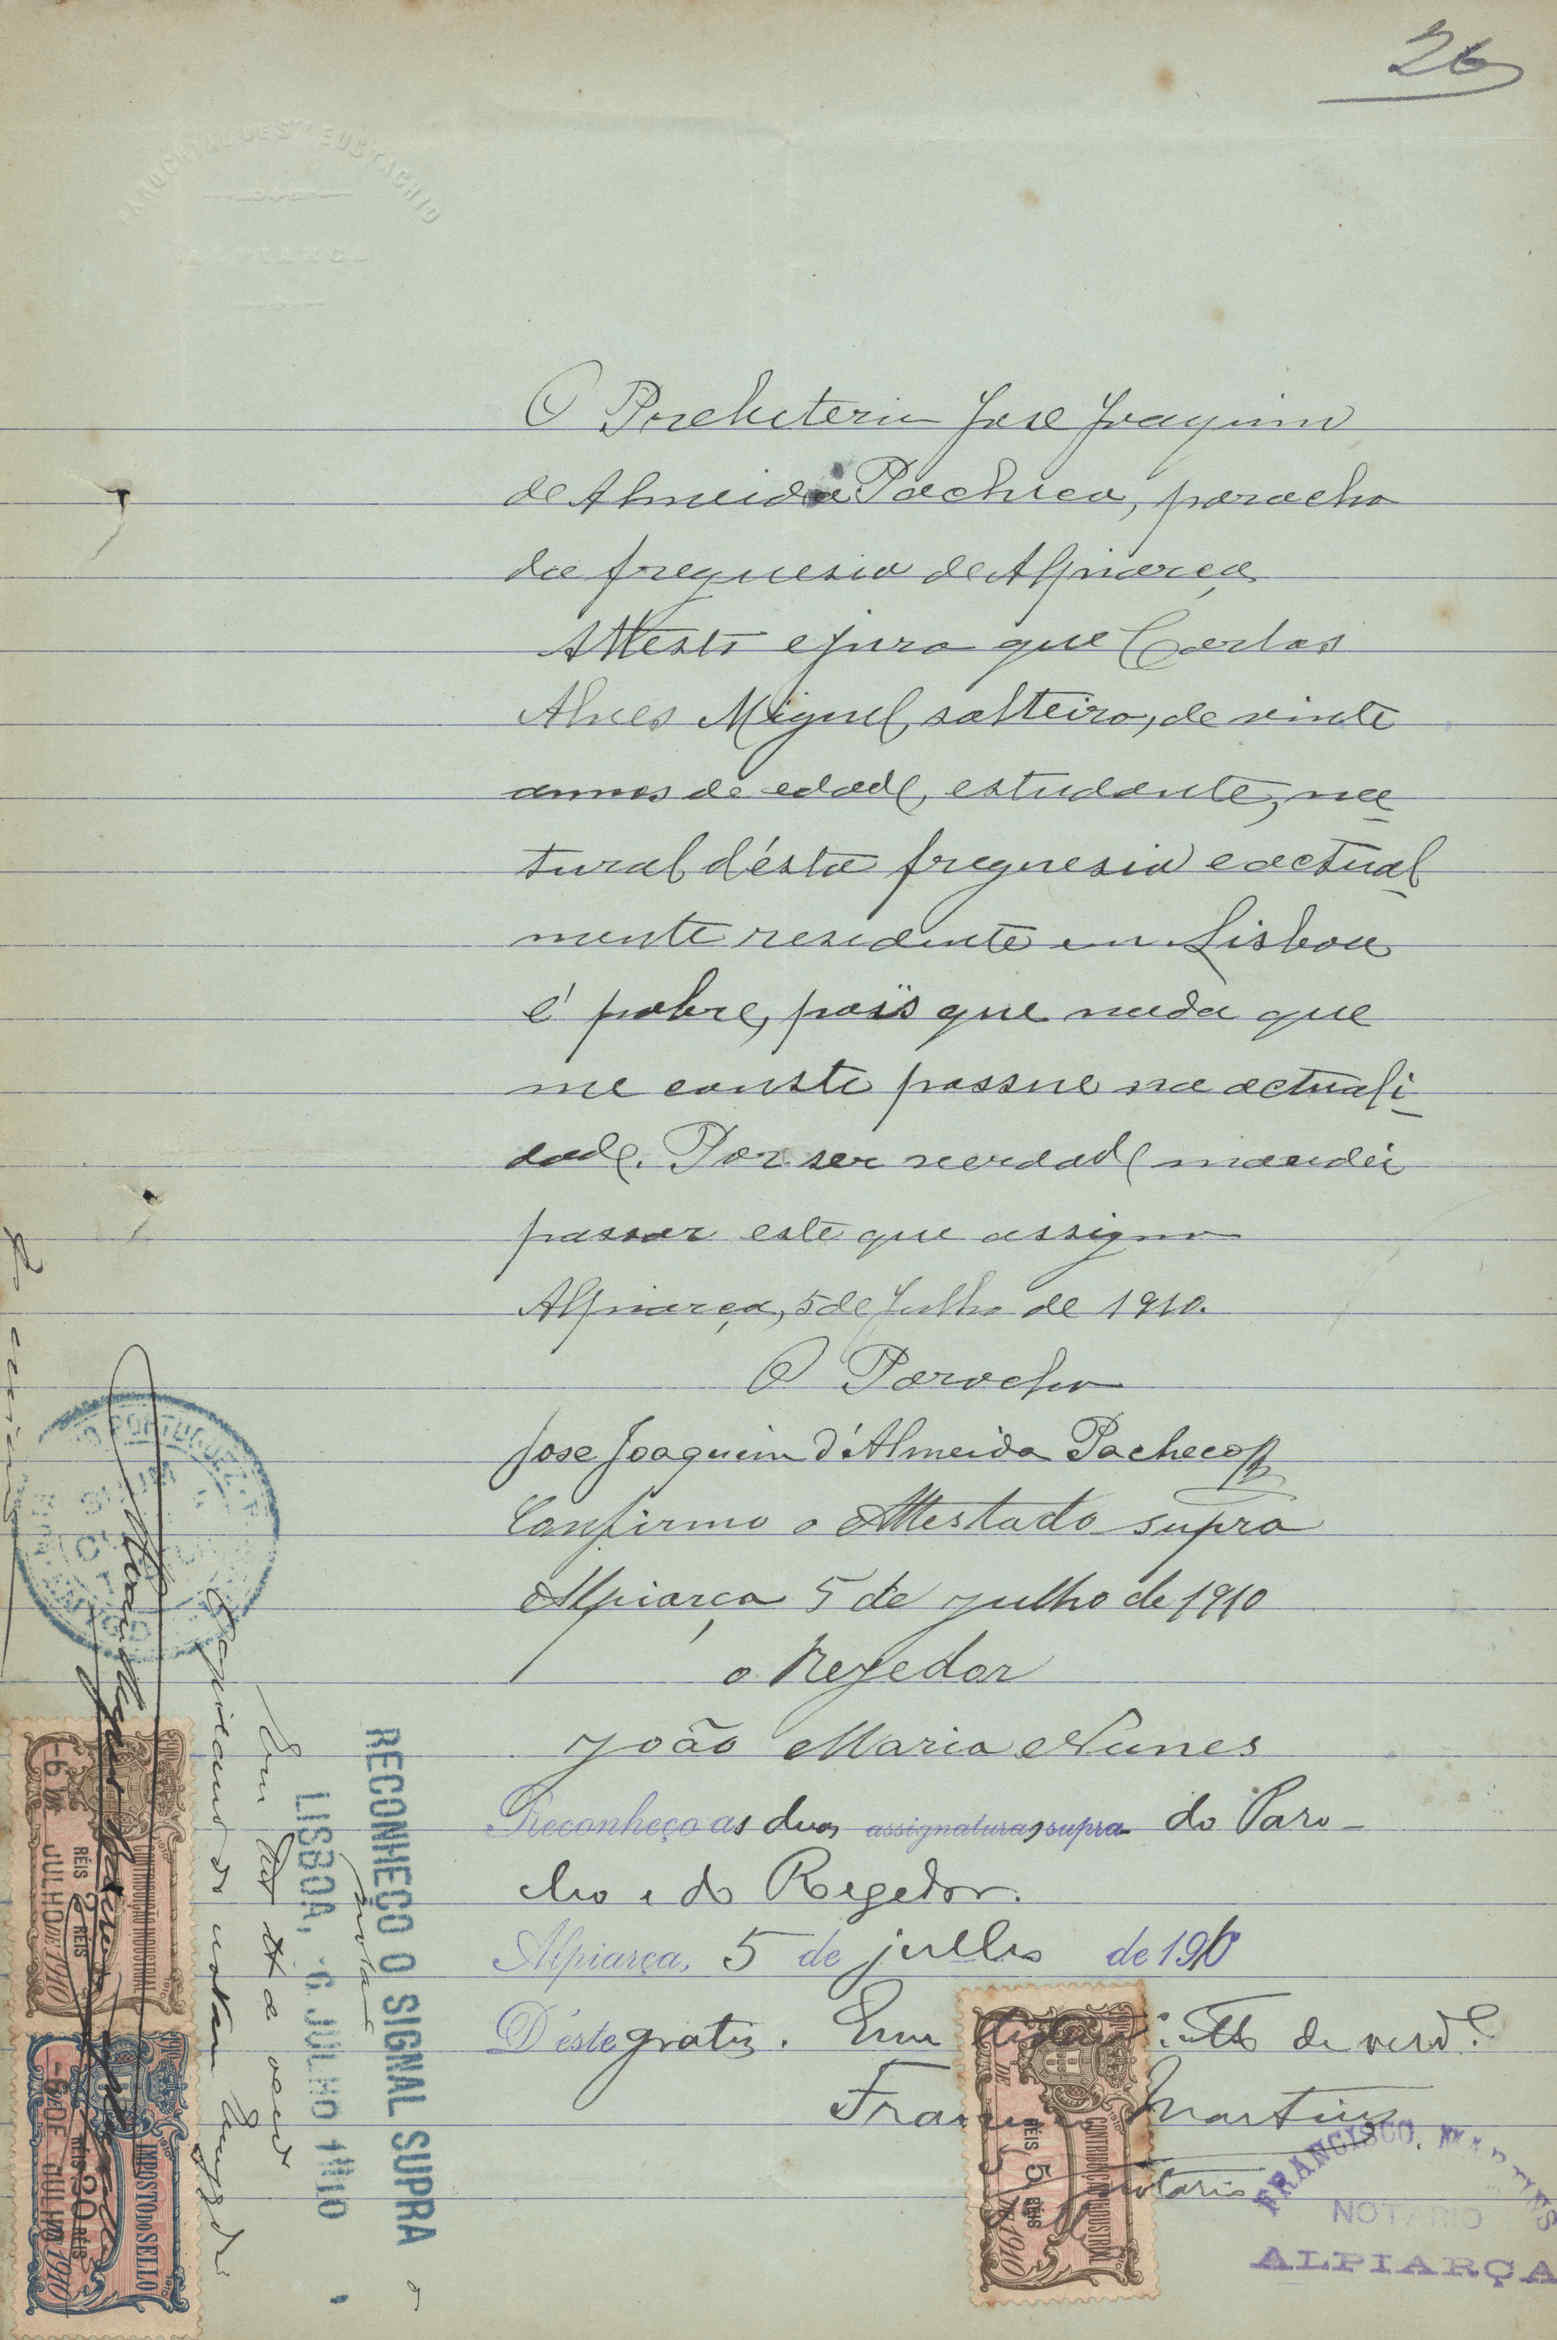 26
PAROCHIAL DE STO EUSTACHIO
O Presbiterio José Joaquim
de Almeida Pacheco, parocho
da freguesia de Alpiarça
Attesto e juro que Carlos
Alves Miguel, solteiro, de vinte
annos de edade, estudante, na-
tural d'ésta freguesia e actual-
mente residente em Lisboa
é pobre, pois que nada que
me conste possue na actuali-
dade. Por ser verdade mandei
passar este que assigno
Alpiarça, 5 de Julho de 1910.
O Parocho
Jose Joaquim d'Almeida Pacheco
Confirmo o Attestado supra
Alpiarça 5 de julho de 1910
o Regedor
João Maria Nunes
Reconheço as duas assignaturas supra do Paro-
cho e do Regedor.
Alpiarça, 5 de julho de 1910
D'este gratis. Em de verd.e
Francisco Martins
notario
FRANCISCO MARTINS
NOTARIO
ALPIARÇA
CONTRIBUIÇÃO INDUSTRIAL
RÉIS 5 RÉIS
5 DE DE 1910
RECONHEÇO O SIGNAL SUPRA
do notario
LISBOA, 6 JULHO 1910
Em de verd
CONTRIBUIÇÃO INDUSTRIAL
RÉIS 2 RÉIS
-6 DE JULHO DE 1910
IMPOSTO DO SELLO
RÉIS 20 RÉIS
-6 DE JULHO 1910